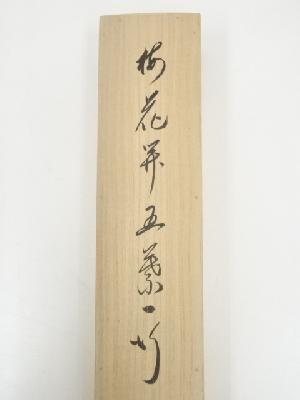 梅花開五葉一行